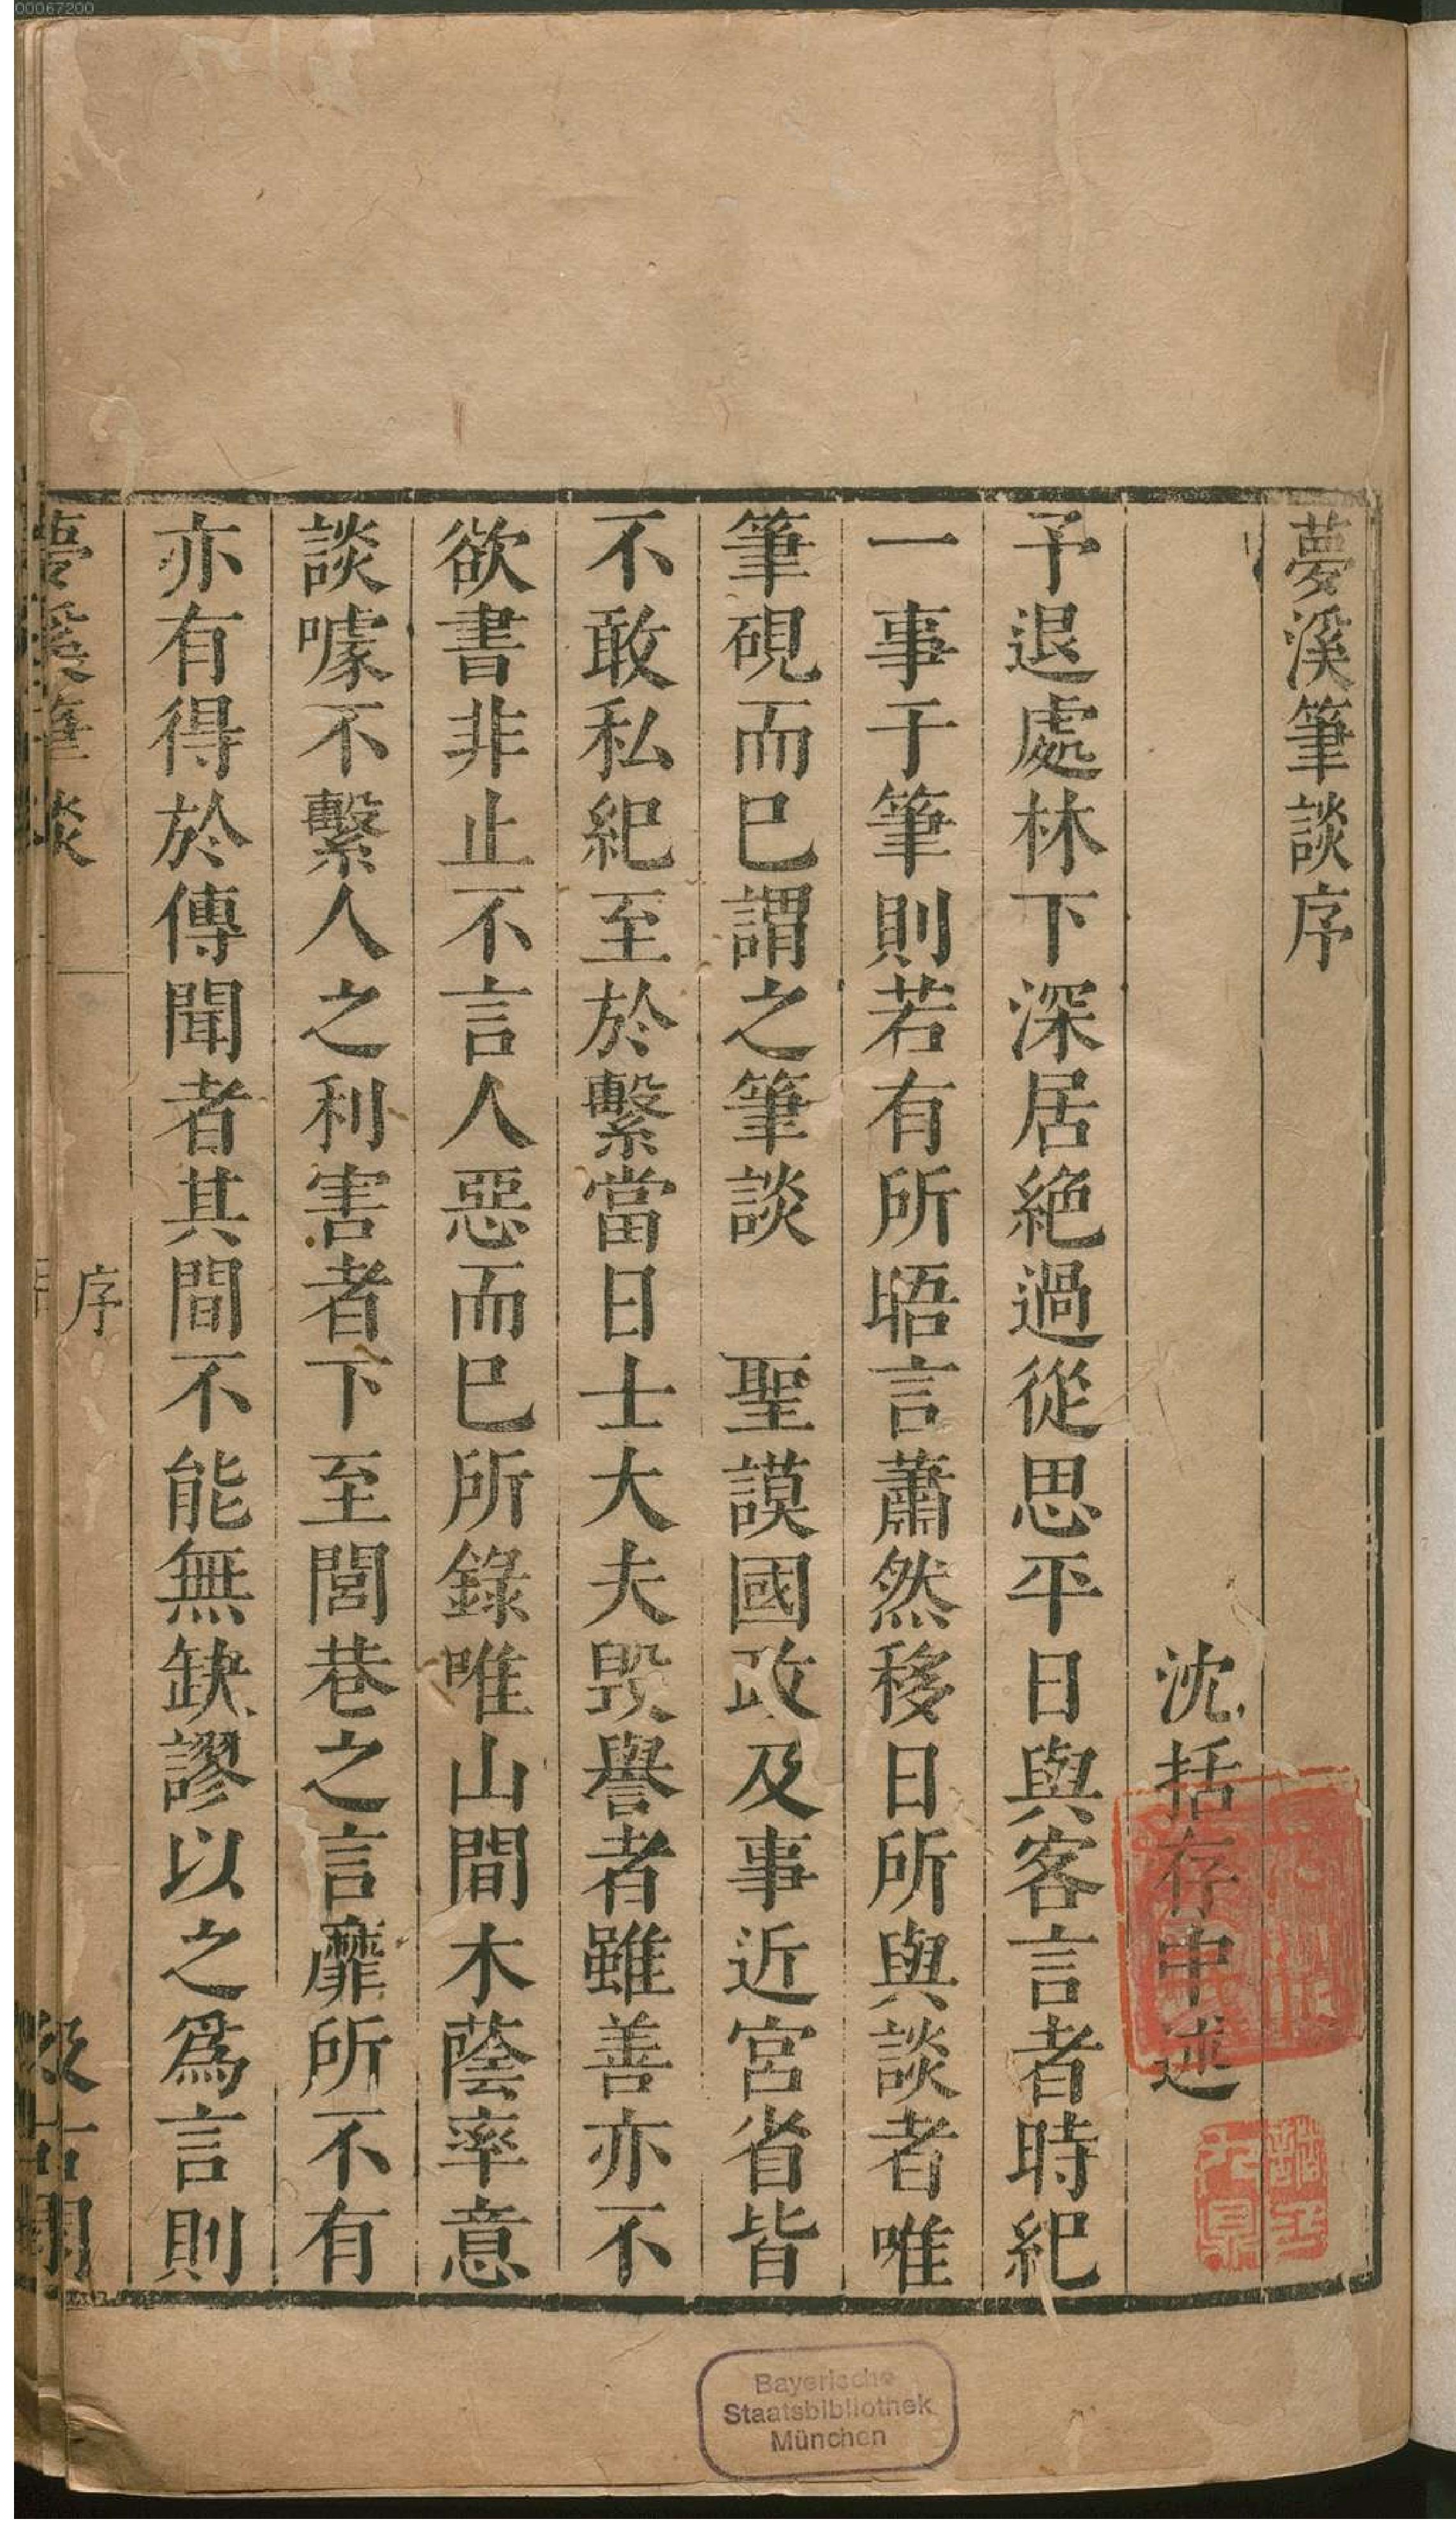 00067200
夢溪筆談序
沈括存中述
予退處林下深居絶過從思平日與客言者時紀
一事于筆則若有所晤言蕭然移日所與談者唯
筆硯而巳謂之筆談　聖謨國政及事近宮省皆
不敢私紀至於繫當日士大夫毁譽者雖善亦不
欲書非止不言人惡而巳所錄唯山間木蔭率意
談噱不繫人之利害者下至閭巷之言靡所不有
亦有得於傳聞者其間不能無缺謬以之爲言則
夢溪筆談
序
汲古閣
Bayerische
Staatsbibliothek
München